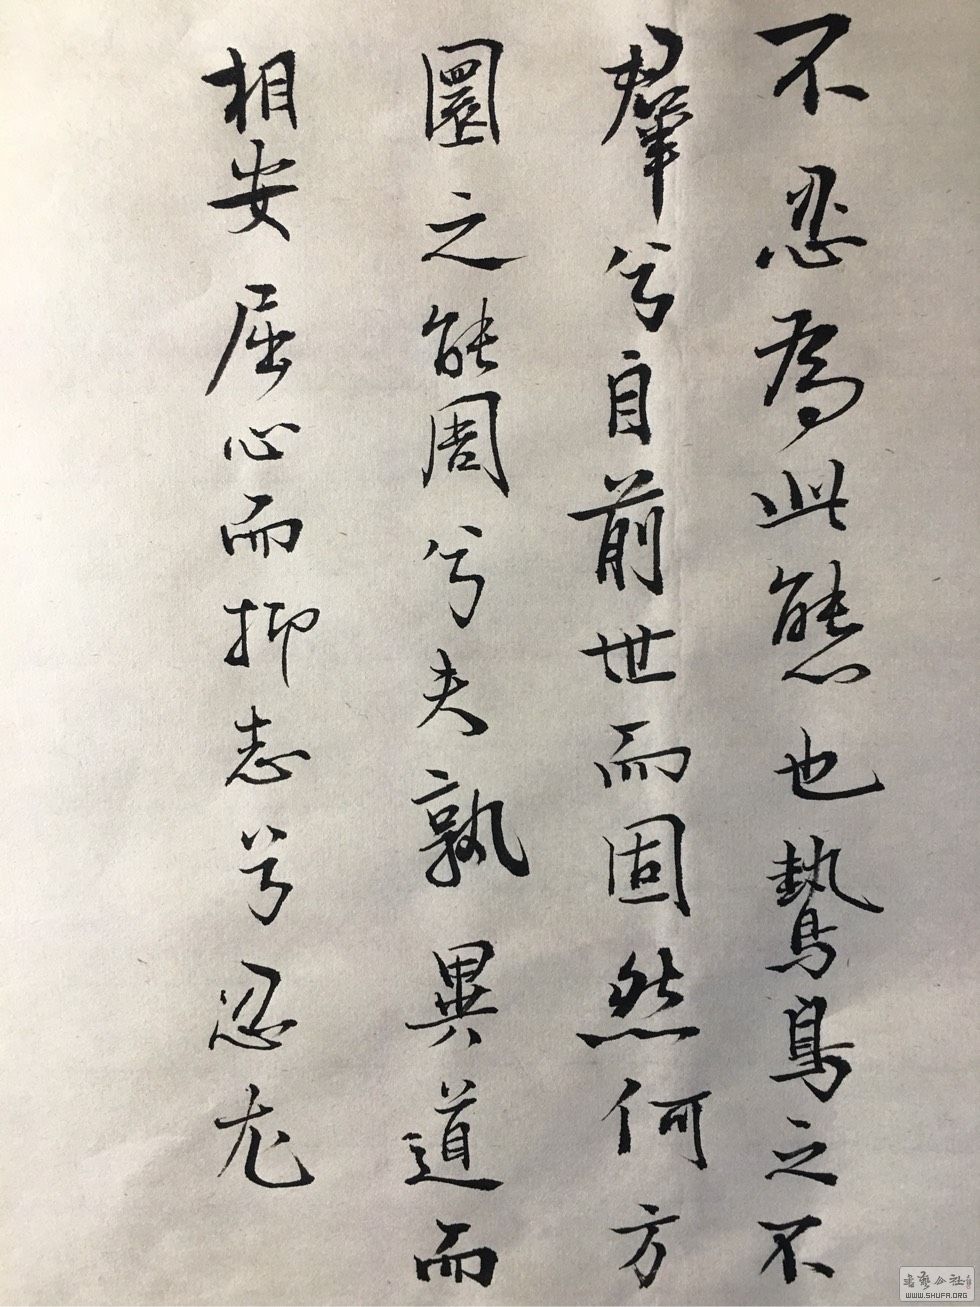 不忍為此態也鷙鳥之不
羣兮自前世而固然何方
圜之能周兮夫孰異道而
相安屈心而抑志兮忍尤
書藝公社
WWW.SHUFA.ORG